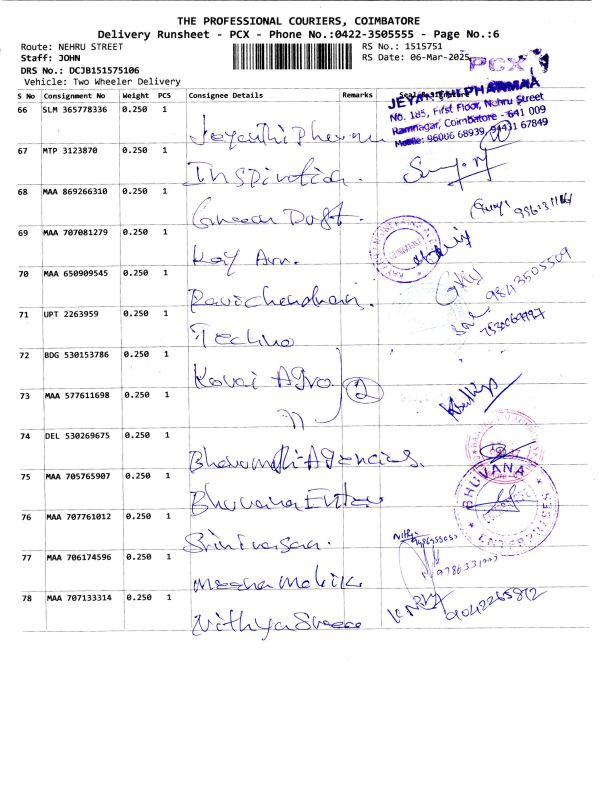 THE PROFESSIONAL COURIERS, COIMBATORE
Delivery Runsheet - PCX - Phone No.:0422-3505555 - Page No.:6
Route: NEHRU STREET
RS No.: 1515751
Staff: JOHN
RS Date: 06-Mar-2025
PCX
DRS No.: DCJB151575106
Vehicle: Two Wheeler Delivery
S No Consignment No Weight PCS Consignee Details Remarks
JEYANTHI PHARMAA
No. 185, First Floor, Nehru Street
Ramnagar, Coimbatore - 641 009
Mobile: 96006 68939, 94431 67849
66 SLM 365778336 0.250 1 Jeyanthi Pharma
67 MTP 3123870 0.250 1 Inspiration.
68 MAA 869266310 0.250 1
69 MAA 707081279 0.250 1 Kay Arr.
70 MAA 650909545 0.250 1 Ravichandran.
9843505509
71 UPT 2263959 0.250 1 Techno
72 BDG 530153786 0.250 1 Kovai Agro
2
73 MAA 577611698 0.250 1 "
74 DEL 530269675 0.250 1 Bharamathi Agencies.
75 MAA 705765907 0.250 1 Bhuvana Enter
BHUVANA ENTERPRISES
76 MAA 707761012 0.250 1 Srinivasan.
77 MAA 706174596 0.250 1 Meena Malik
78 MAA 707133314 0.250 1 Nithya Sree